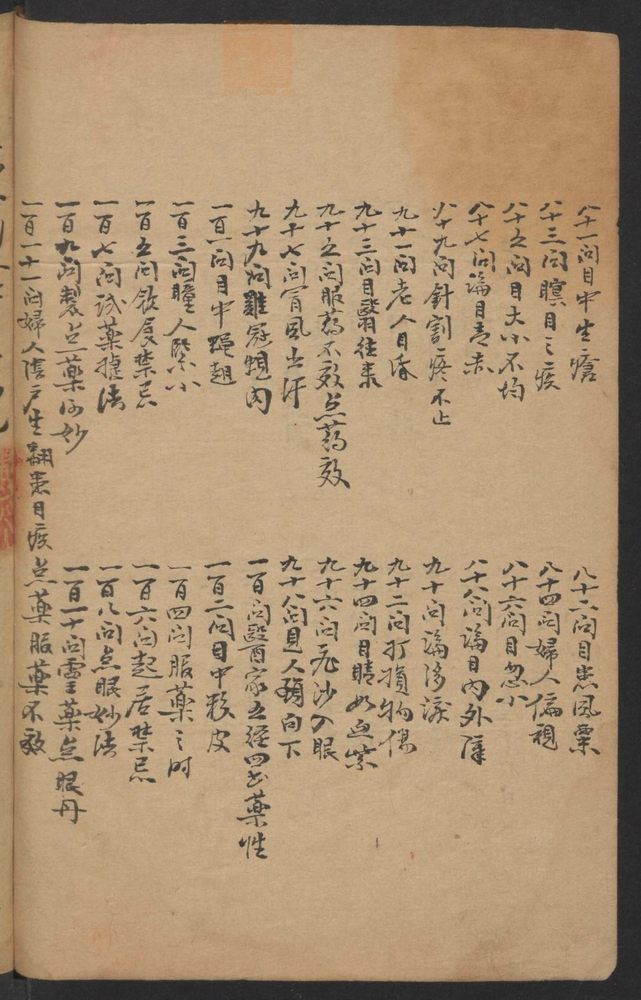 八十一問目中生瘡
八十二問目患風粟
八十三問瞑目之疾
八十四問婦人偏視
八十五問目大小不均
八十六問目忽小
八十七問論目青赤
八十八問論目內外障
八十九問針割疼不止
九十問論落淚
九十一問老人目昏
九十二問打損物傷
九十三問目翳往來
九十四問目睛如血紫
九十五問服药不效点药效
九十六問飛沙入眼
九十七問冒風出汗
九十八問見人頭向下
九十九問雞冠蜆肉
一百問醫百家五經四書藥性
一百一問目中蝇翅
一百二問目中皮
一百三問瞳人緊小
一百四問服藥之时
一百五問飲食禁忌
一百六問起居禁忌
一百七問試藥法
一百八問点眼妙法
一百九問製点藥妙
一百一十問靈藥点眼丹
一百一十一問婦人陰戶生翻患目疾点藥服藥不效